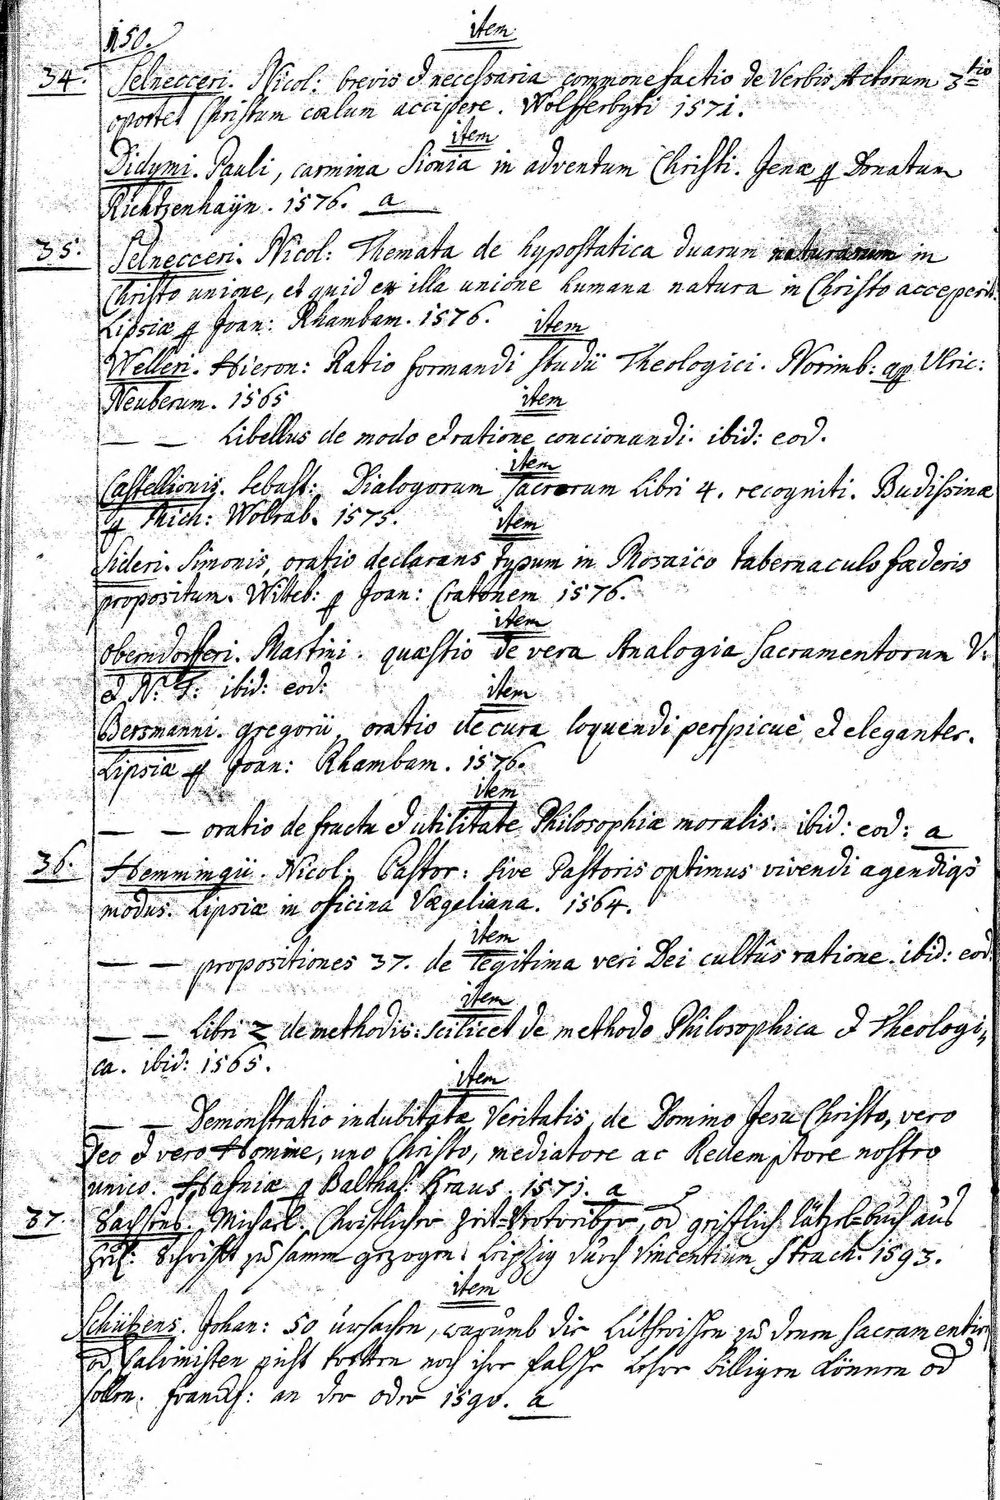 150.
item
34. Selnecceri. Nicol: brevis et necessaria commonefactio de Verbis Actorum 3tio
oportet Christum cœlum accipere. Wolfferbyti 1571.
item
Didymi. Pauli, carmina Sionia in adventum Christi. Jenæ p Donatum
Richtzenhaÿn. 1576. a
35. Selnecceri. Nicol: Themata de hypostatica duarum naturarum in
Christo unione, et quid ex illa unione humana natura in Christo acceperit.
Lipsiæ p Joan: Rhambam. 1576.
item
Welleri. Hieron: Ratio formandi studii Theologici. Norimb: ap Ulric:
Neuberum. 1565
item
— — Libellus de modo et ratione concionandi. ibid: eod.
item
Castellionis. Sebast: Dialogorum sacrorum Libri 4. recogniti. Budissinæ
p Mich: Wolrab. 1575.
item
Sideri. Simonis, oratio declarans typum in Mosaico tabernaculo fœderis
propositum. Witeb: p Joan: Cratonem 1576.
item
Oberndorfferi. Martini. quæstio de vera Analogia Sacramentorum V:
et N: T: ibid: eod:
item
Bersmanni. gregorii, oratio de cura loquendi perspicuè et eleganter.
Lipsiæ p Joan: Rhambam. 1576.
item
— — oratio de fructu et utilitate Philosophiæ moralis. ibid: eod: a
36. Hemmingii. Nicol: Pastor: sive Pastoris optimus vivendi agendiq3
modus. Lipsiæ in officina Vœgeliana. 1564.
item
— — propositiones 37. de legitima veri Dei cultûs ratione. ibid: eod.
item
— — Libri 2 de methodis: scilicet de methodo Philosophica et Theologi,
ca. ibid: 1565.
item
— — Demonstratio indubitatæ Veritatis, de Domino Jesu Christo, vero
Deo et vero Homine, uno Christo, mediatore ac Redemptore nostro
unico. Hafniæ p Balthas: Kraus 1571. a
37. Sachsens. Michael. Christlicher Zeit-Vertreiber, od geistlich Rätzel-buch aus
Heil: Schrifft zusamm gezogen. Leipzig durch Vincentium Strach. 1593.
item
Schützens. Johan: 50 ursachen, warumb die Lutherischen zu denen Sacramentirn
od Calvinisten nicht tretten noch ihre falsche Lehre billigen können od
sollen. Franckf: an der oder 1590. a